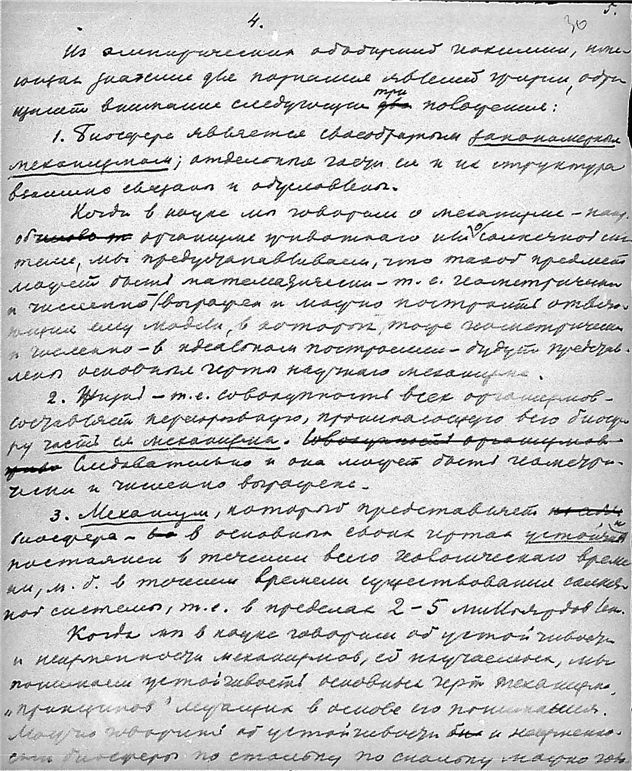 4.
5.
30
Из эмпирических обобщений показании, имею-
щих значение для понимания явлений жизни, обра-
щают внимание следующие три два положения:
1. Биосфера является своеобразным закономерным
механизмом; отдельные части ея и их структура
взаимно связаны и обусловлены.
Когда в науке мы говорим о механизме – напр.
об организме животнаго или о солнечной сис-
теме, мы предустанавливаем, что такой предмет
может быть математически – т.е. геометрически
и численно выражен и можно построить отвеча-
ющия ему модели, в которой, тоже геометрически
и численно – в идеальном построении – будут представ-
лены основныя черты научнаго механизма.
2. Жизнь – т.е. совокупность всех организмов –
составляет неразрывную, проникающую всю биосфе-
ру часть ея механизма. Совокупность организмов
Следовательно и она может быть геометри-
чески и численно выражена.
3. Механизм, который представляет
биосфера – в основных своих чертах устойчив
постоянен в течении всего геологическаго време-
ни, м. б. в течении времени существования солнеч-
ной системы, т.е. в пределах 2–5 миллиардов лет.
Когда мы в науке говорим об устойчивости
и неизменности механизмов, ей изучаемых, мы
понимаем устойчивость основных черт механизма,
„принципов" лежащих в основе его понимания.
Можно говорить об устойчивости и неизменно-
сти биосферы по стольку по скольку можно гов.